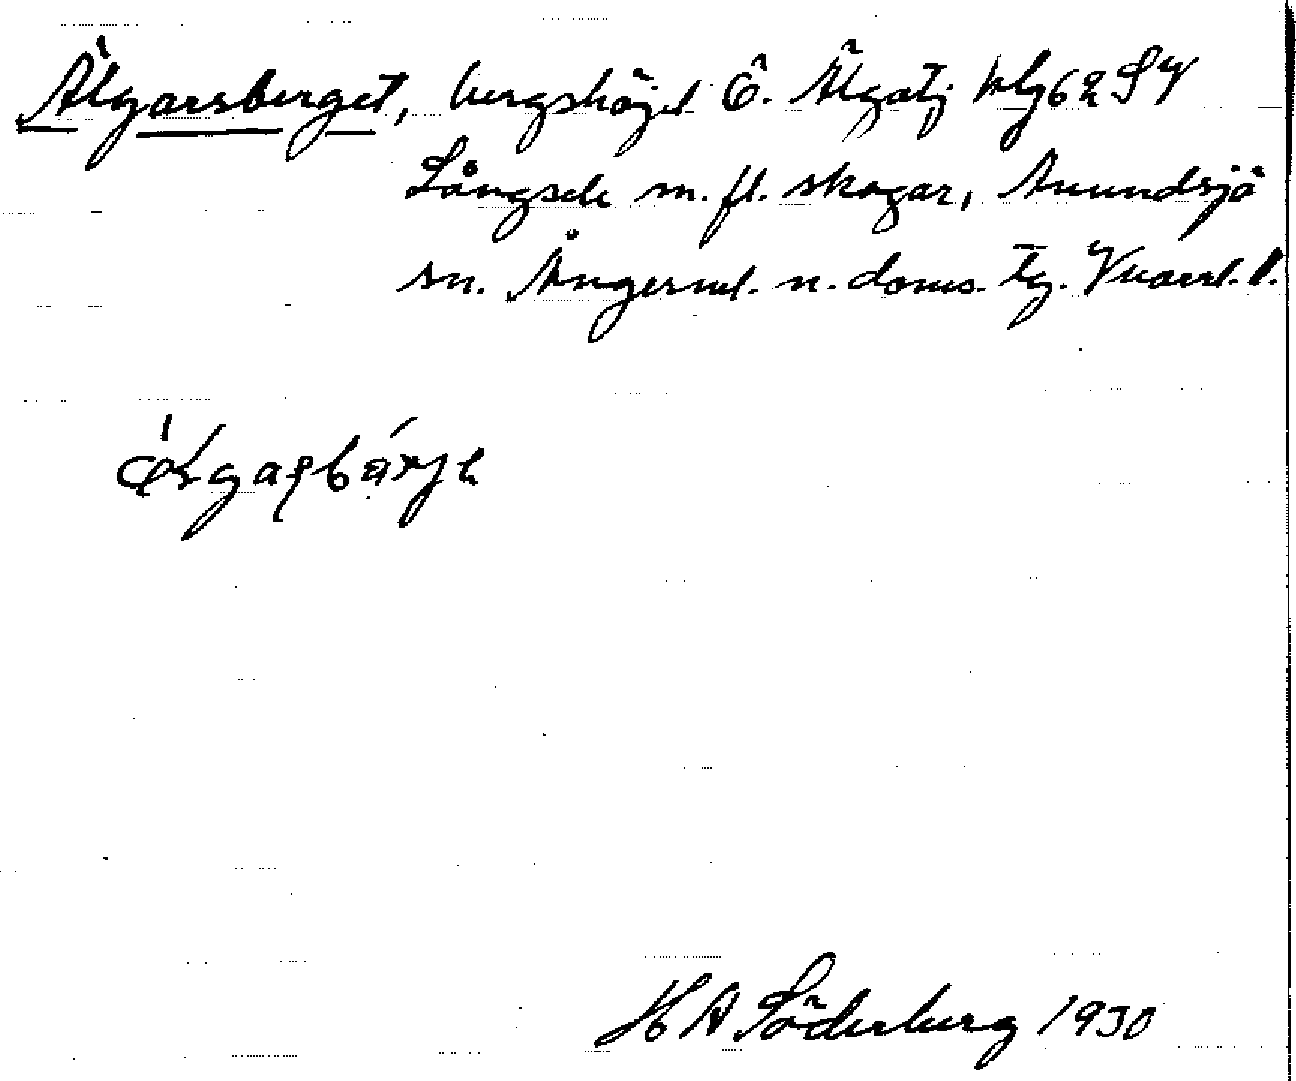 Älgarsberget, bergshöjd Ö. Älgatj klg 62 SV
Långsele m. fl. skogar, Anundsjö
sn. Ångerml. n. doms. tg. Vnorrl. l.
H A Söderberg 1930